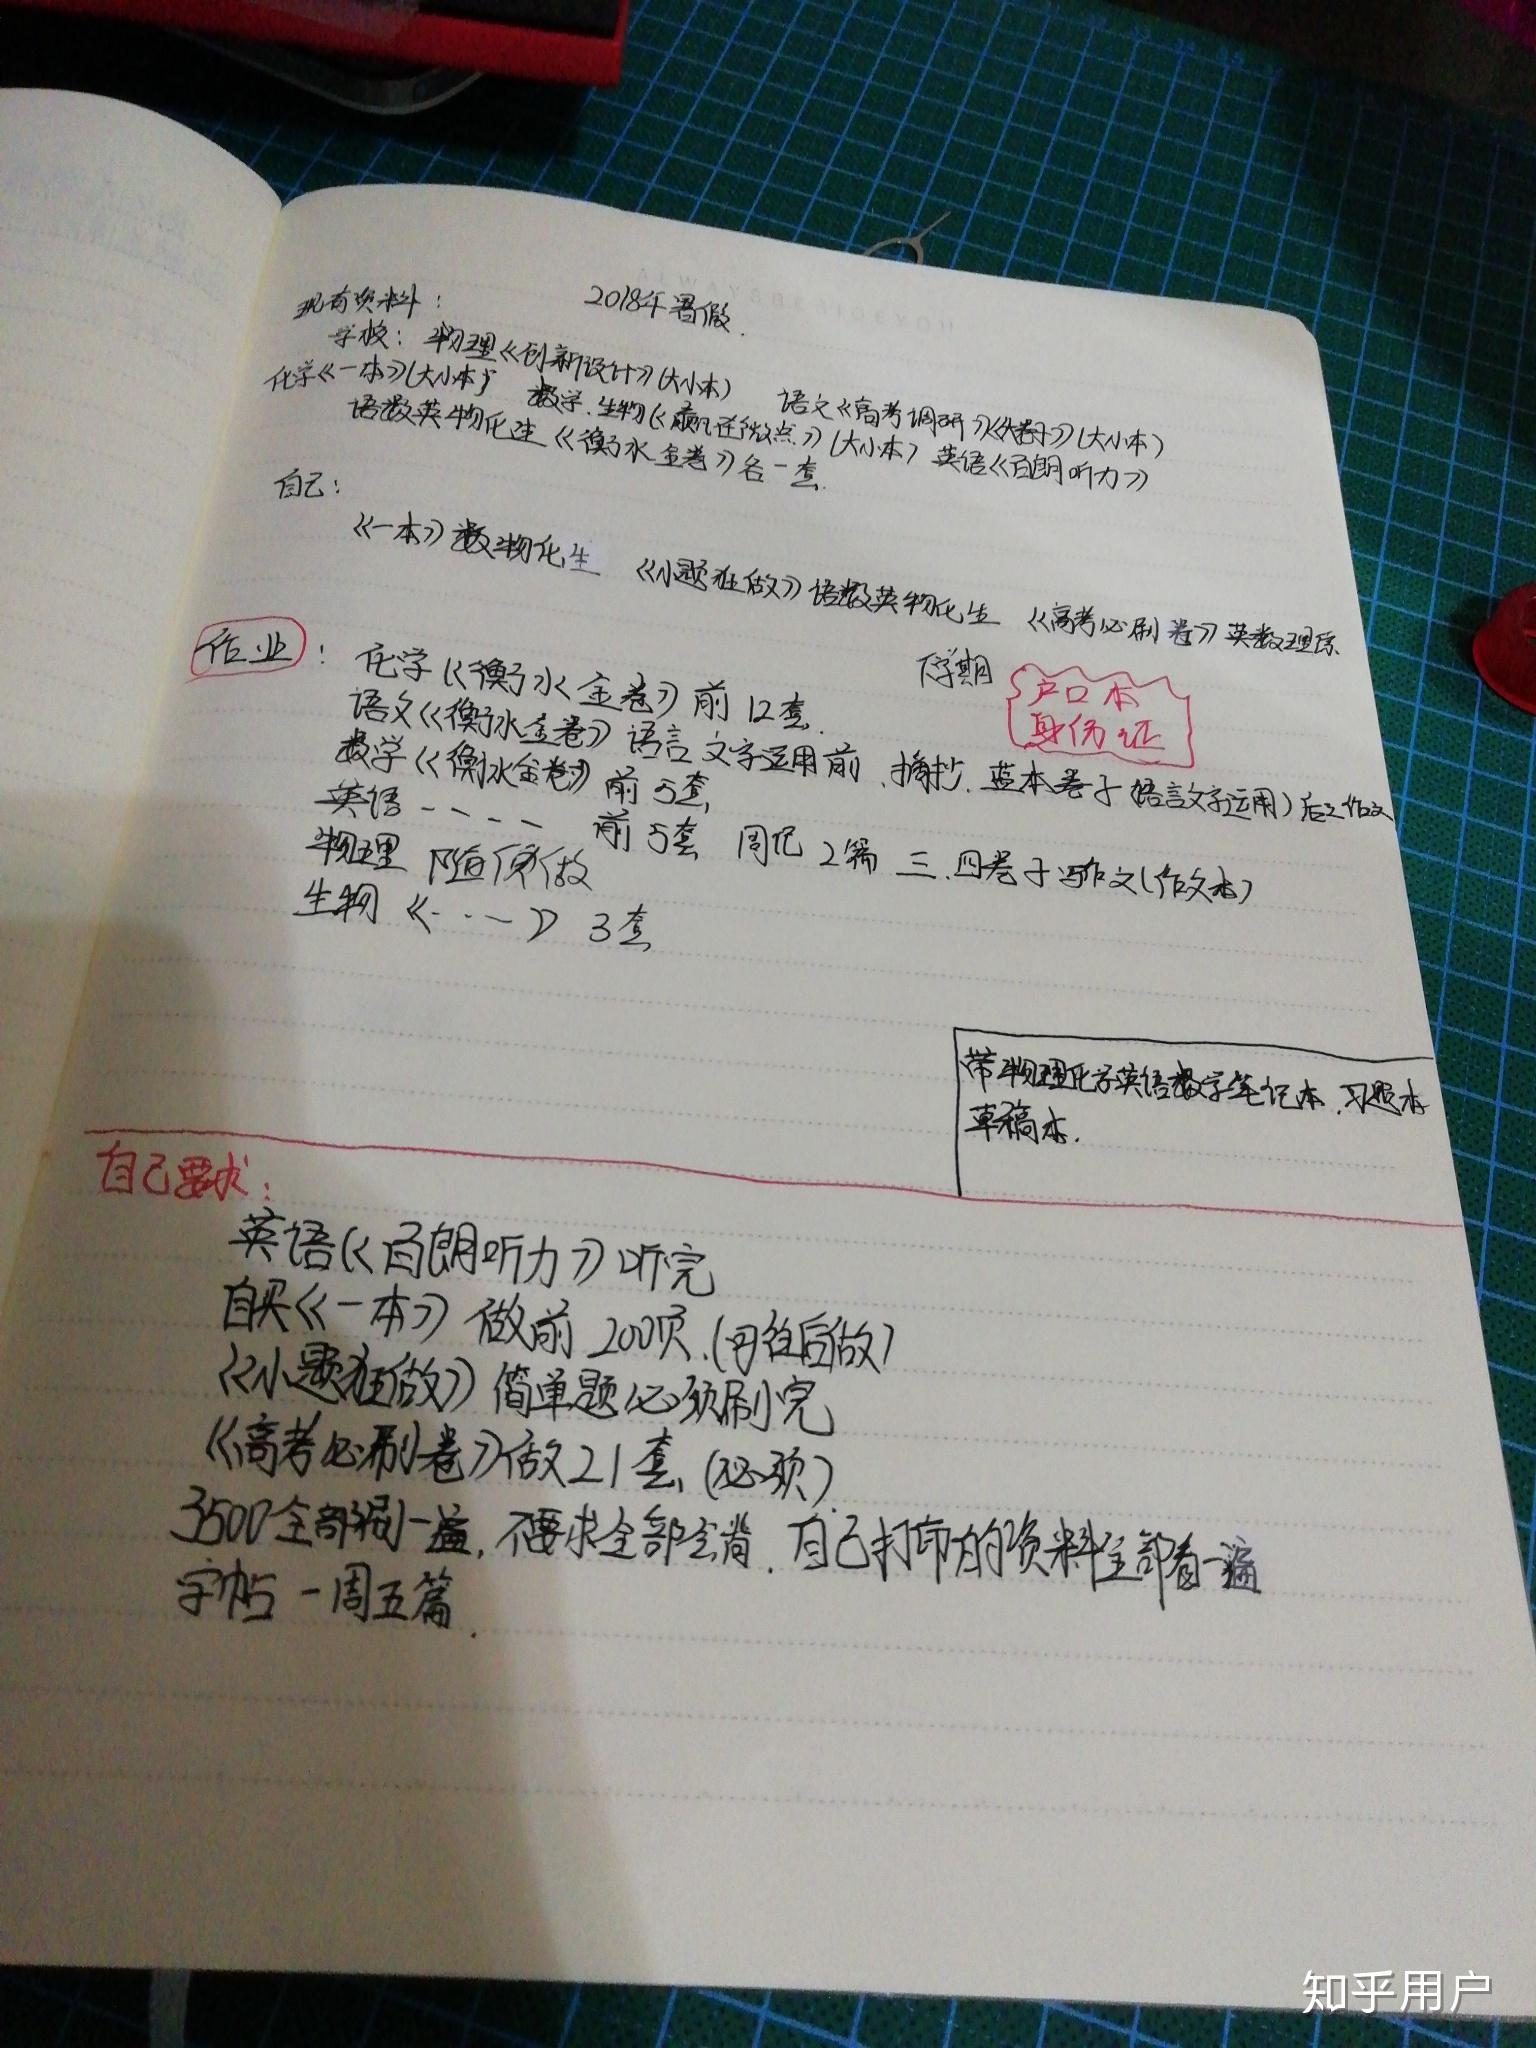 2018年暑假.
现有资料：
学校：物理《创新设计》(大小本) 语文《高考调研》《卷子》(大小本)
化学《一本》(大小本) 数学.生物《赢在微点》(大小本) 英语《百朗听力》
语数英物化生《衡水金卷》各一套.
自己：
《一本》数物化生 《小题狂做》语数英物化生 《高考必刷卷》英数理综
作业： 化学《衡水金卷》前12套.
下学期 户口本
身份证
语文《衡水金卷》语言文字运用前、摘抄.蓝本卷子(语言文字运用)后2作文
数学《衡水金卷》前5套
英语---- 前5套 周记2篇 三.四卷子写作文(作文本)
物理 随便做
生物《···—》3套
带物理化学英语数学笔记本.习题本
草稿本.
自己要求：
英语《百朗听力》听完
自买《一本》做前200页.(再往后做)
《小题狂做》简单题必须刷完
《高考必刷卷》做21套(必须).
3500全部刷一遍.不要求全部会背.自己打印的资料全部看一遍
字帖一周五篇.
知乎用户